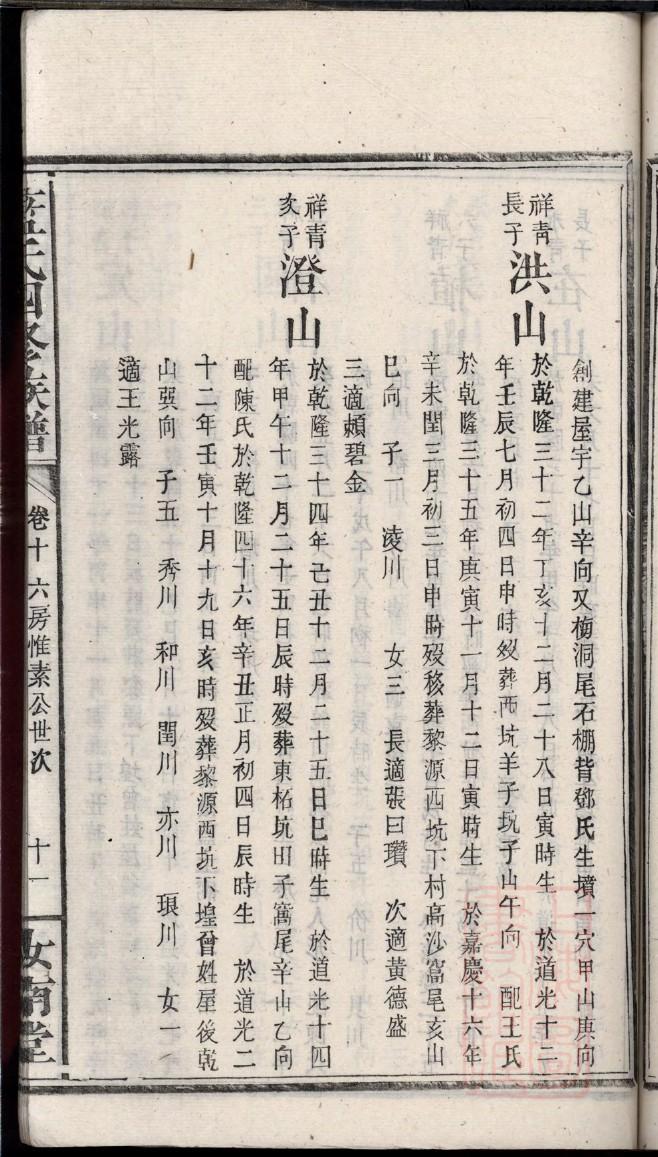 創建屋宇乙山辛向又梅洞尾石棚背鄧氏生墳一穴甲山庚向
祥青長子 洪山
於乾隆三十二年丁亥十二月二十八日寅時生 於道光十二
年壬辰七月初四日申時歿葬西坑羊子坑子山午向 配王氏
於乾隆三十五年庚寅十一月十二日寅時生 於嘉慶十六年
辛未閏三月初三日申時歿移葬黎源西坑下村高沙窩尾亥山
巳向 子一 凌川 女三 長適張曰瓚 次適黃德盛
三適賴碧金
祥青次子 澄山
於乾隆三十四年己丑十二月二十五日巳時生 於道光十四
年甲午十二月二十五日辰時歿葬東柘坑田子窩尾辛山乙向
配陳氏於乾隆四十六年辛丑正月初四日辰時生 於道光二
十二年壬寅十月十九日亥時歿葬黎源西坑下堭曾姓屋後乾
山巽向 子五 秀川 和川 閏川 亦川 琅川 女一
適王光露
氏四修族譜 卷十六房惟素公世次 十一 汝南堂